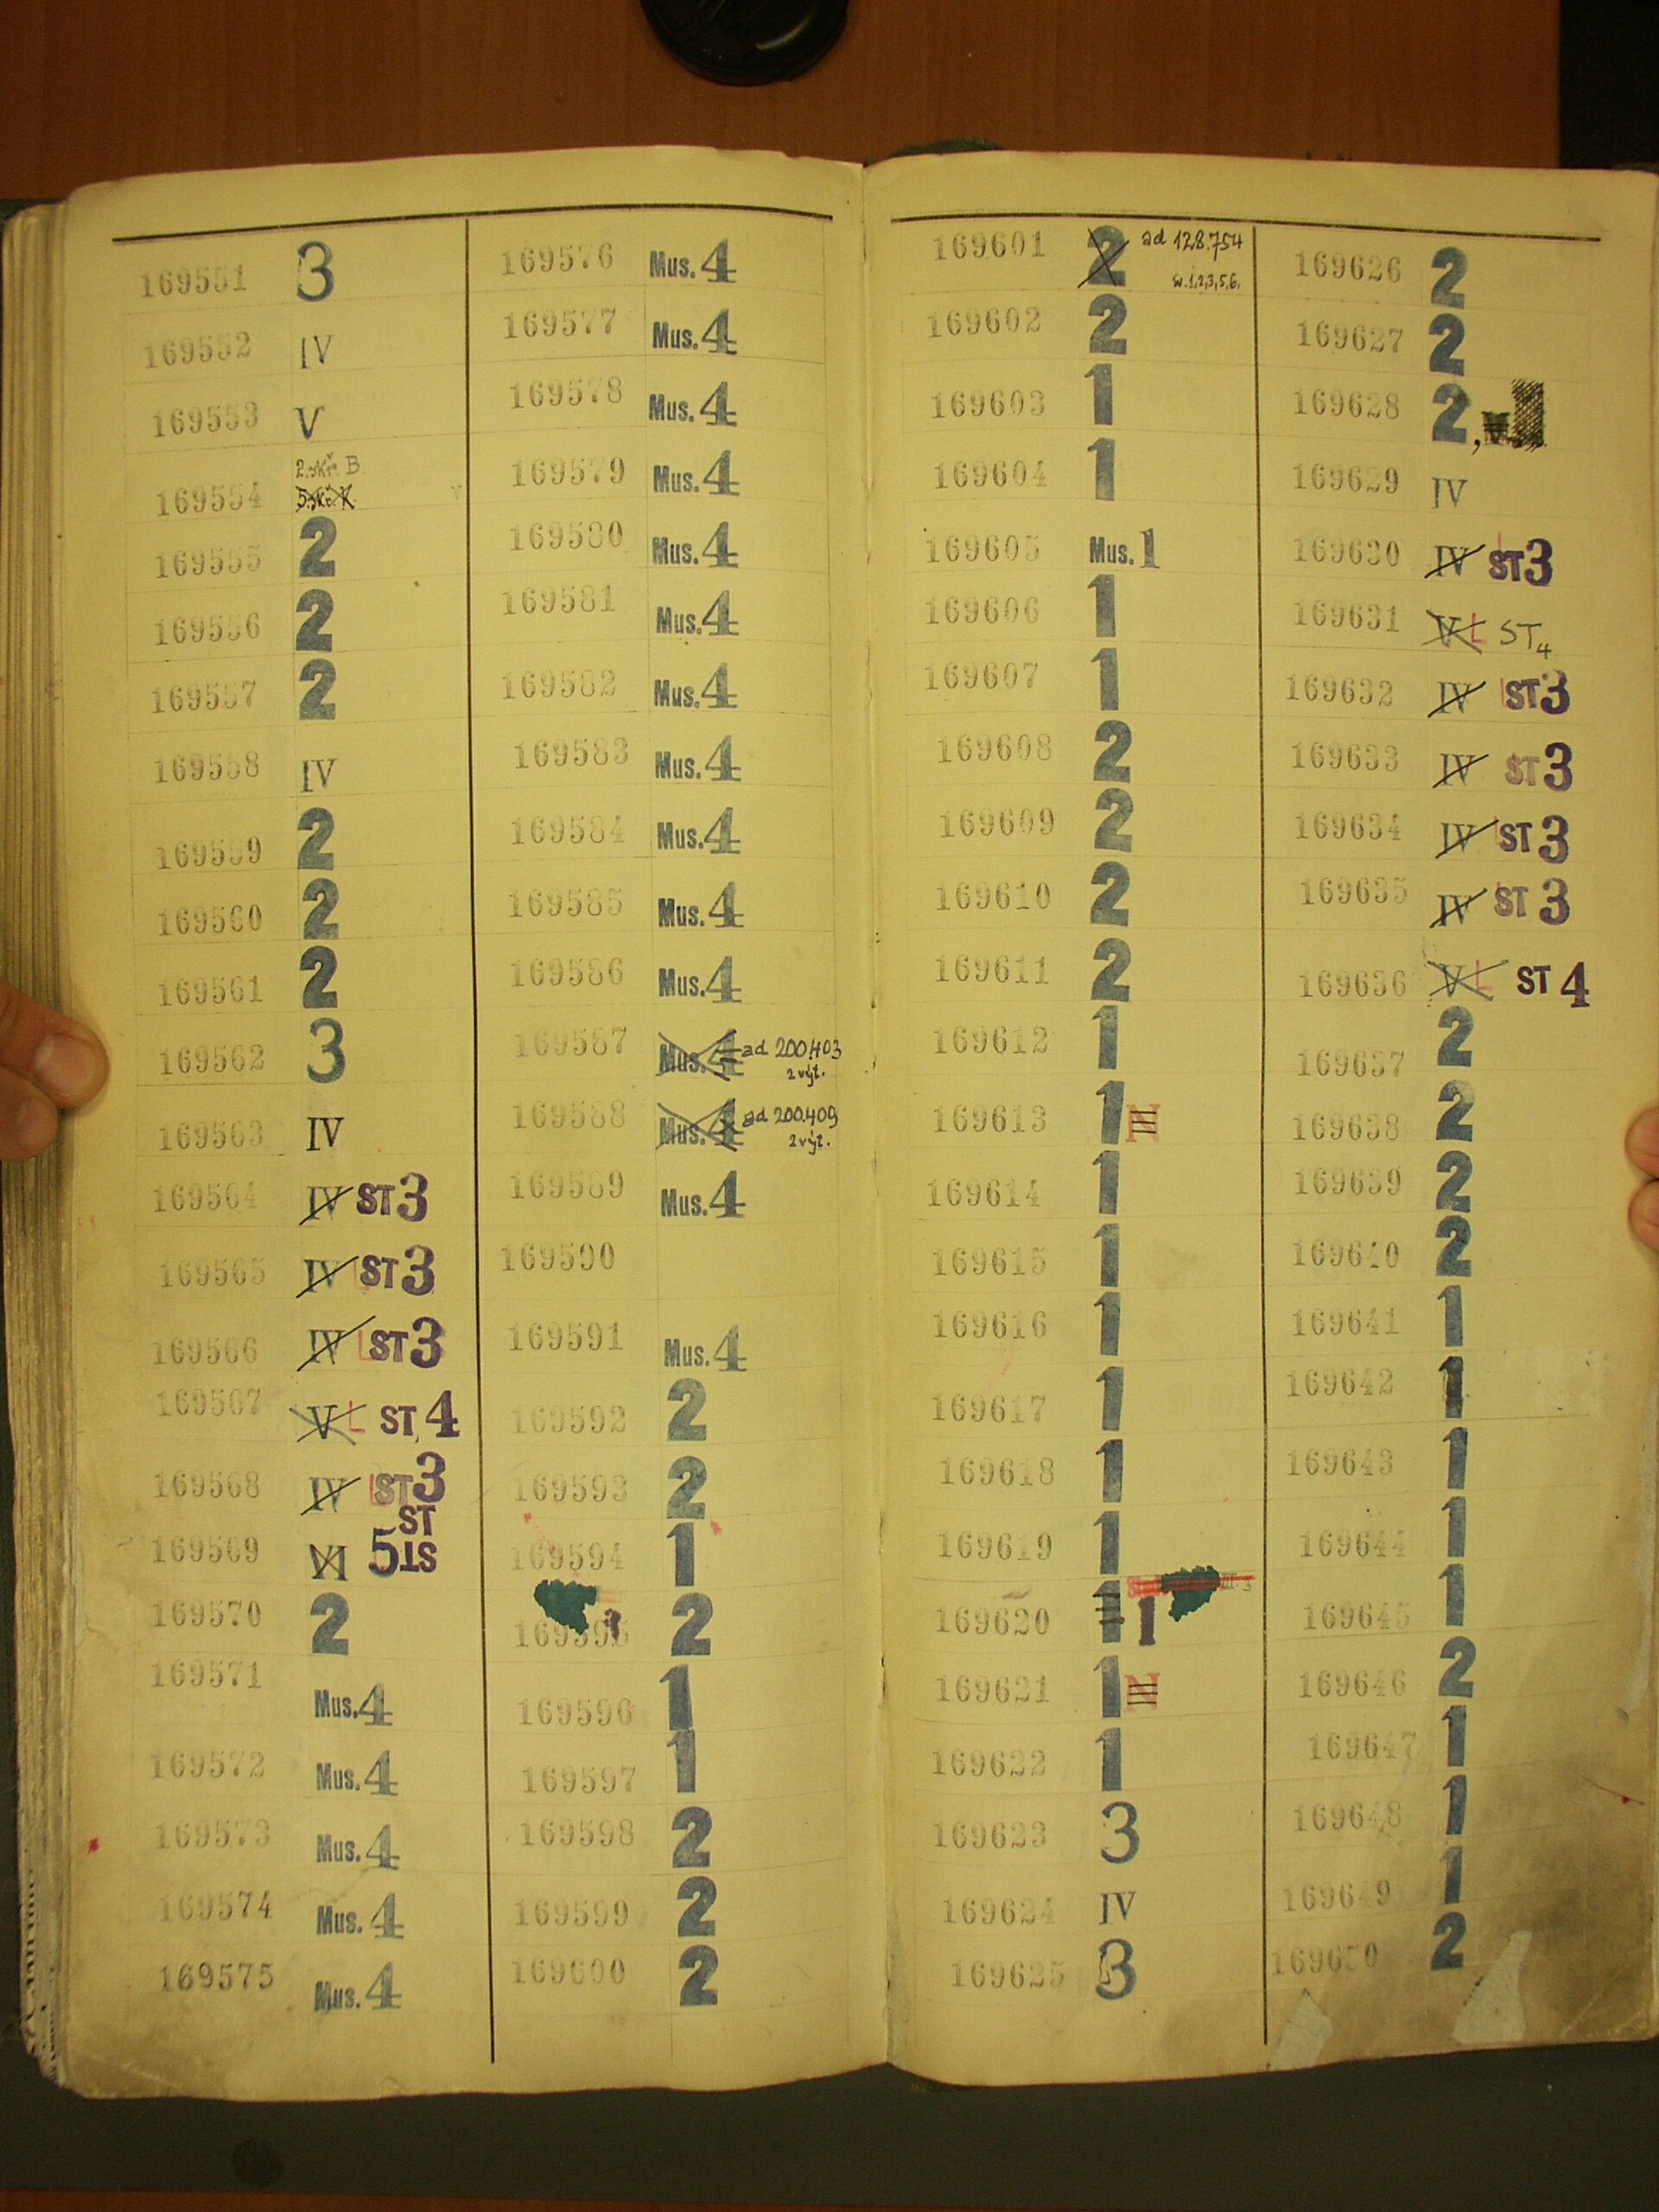 169551 3
169552 IV
169553 V
2.skř. B
169554
169555 2
169556 2
169557 2
169558 IV
169559 2
169560 2
169561 2
169562 3
169563 IV
169564 IV ST 3
169565 IV L ST 3
169566 IV L ST 3
169567 V L ST 4
169568 IV L ST 3
ST
169569 VI 5 ST
169570 2
169571 Mus. 4
169572 Mus. 4
169573 Mus. 4
169574 Mus. 4
169575 Mus. 4
169576 Mus. 4
169577 Mus. 4
169578 Mus. 4
169579 Mus. 4
169580 Mus. 4
169581 Mus. 4
169582 Mus. 4
169583 Mus. 4
169584 Mus. 4
169585 Mus. 4
169586 Mus. 4
169587 Mus. 4 ad 200.403
2 výt.
169588 Mus. 4 ad 200.409
2 výt.
169589 Mus. 4
169590
169591 Mus. 4
169592 2
169593 2
169594 1
169595 2
169596 1
169597 1
169598 2
169599 2
169600 2
169601 2 ad 128.754
sv. 1,2,3,5,6.
169602 2
169603 1
169604 1
169605 Mus. 1
169606 1
169607 1
169608 2
169609 2
169610 2
169611 2
169612 1
169613 1 N
169614 1
169615 1
169616 1
169617 1
169618 1
169619 1
169620 1 1
169621 1 N
169622 1
169623 3
169624 IV
169625 3
169626 2
169627 2
169628 2,
169629 IV
169630 IV L ST 3
169631 V L ST4
169632 IV L ST 3
169633 IV ST 3
169634 IV L ST 3
169635 IV L ST 3
169636 V L ST 4
169637 2
169638 2
169639 2
169640 2
169641 1
169642 1
169643 1
169644 1
169645 1
169646 2
169647 1
169648 1
169649 1
169650 2